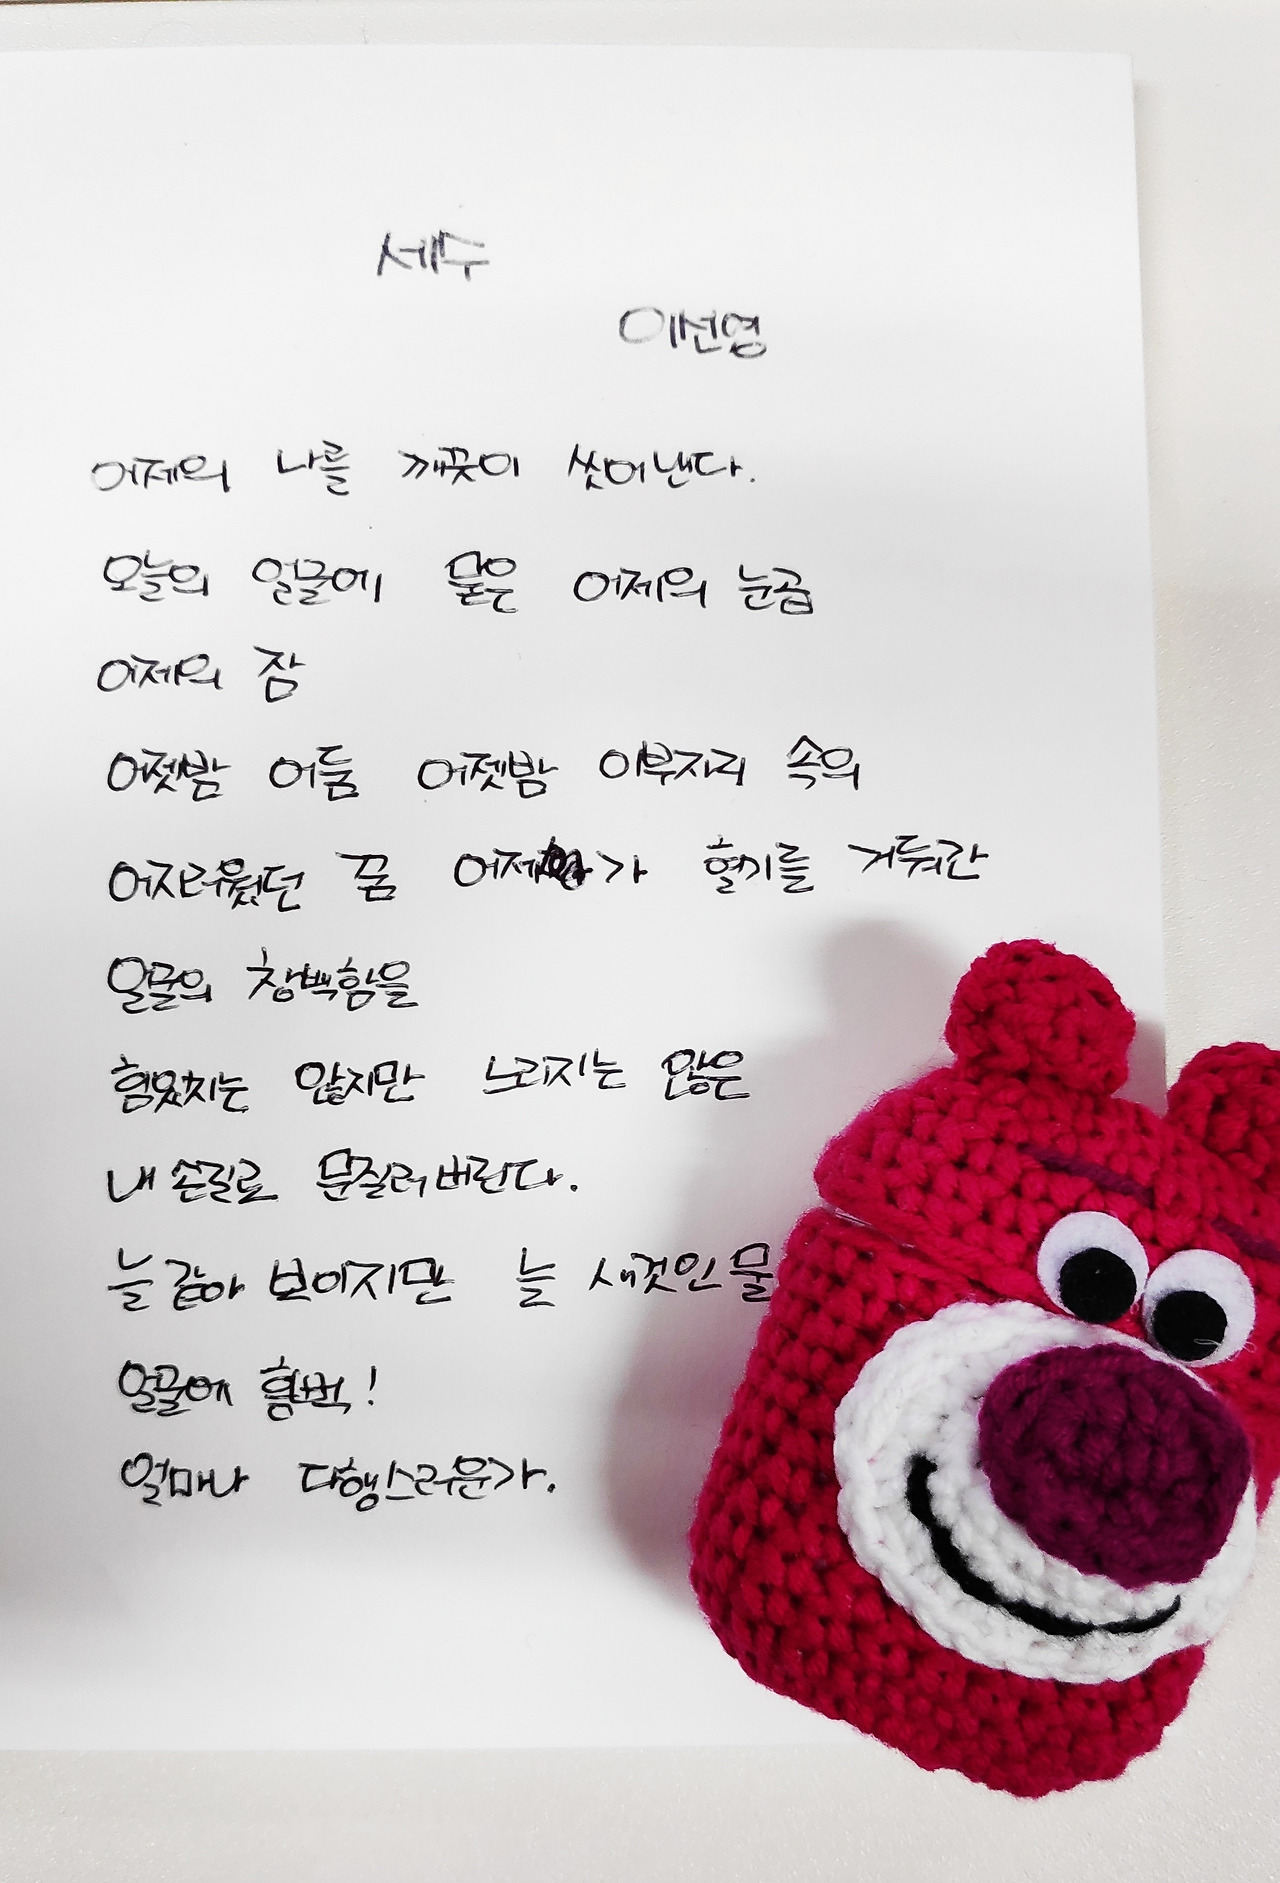 세수
이선영
어제의 나를 깨끗이 씻어낸다.
오늘의 얼굴에 묻은 어제의 눈곱
어제의 잠
어젯밤 어둠 어젯밤 이부자리 속의
어지러웠던 꿈 어제가 혈기를 거둬간
얼굴의 창백함을
힘있지는 않지만 느리지는 않은
내 손길로 문질러버린다.
늘 같아 보이지만 늘 새것인 물
얼굴에 흠뻑!
얼마나 다행스러운가.